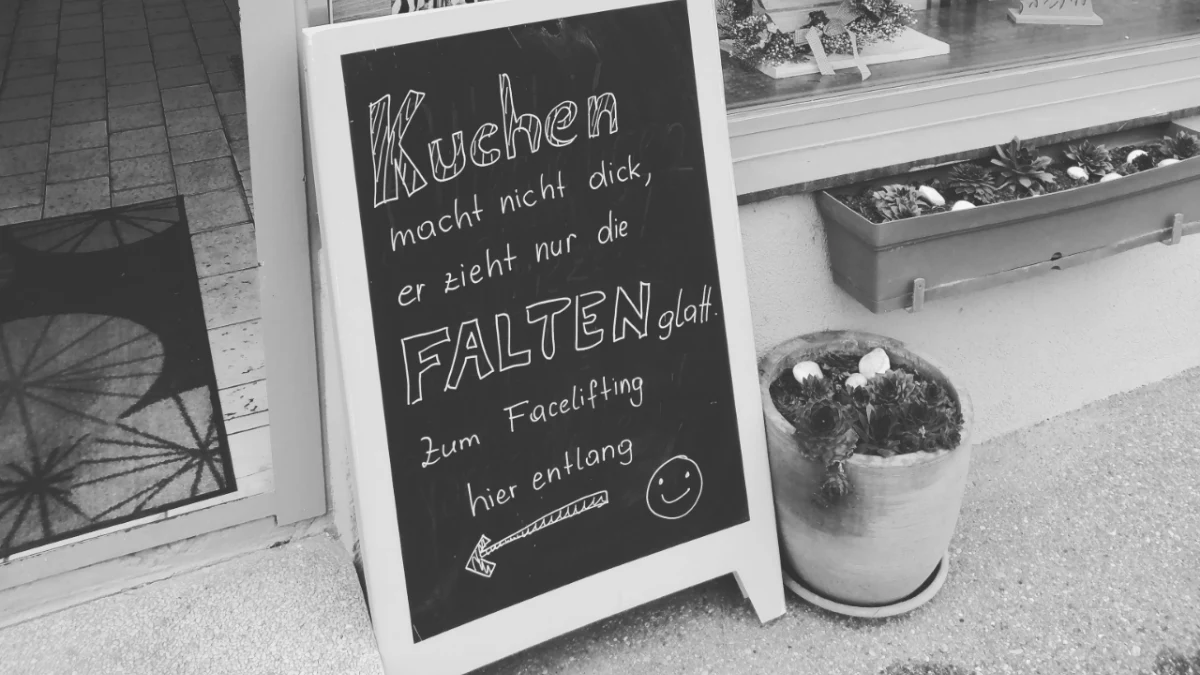 Kuchen
macht nicht dick,
er zieht nur die
FALTEN glatt.
Zum Facelifting
hier entlang